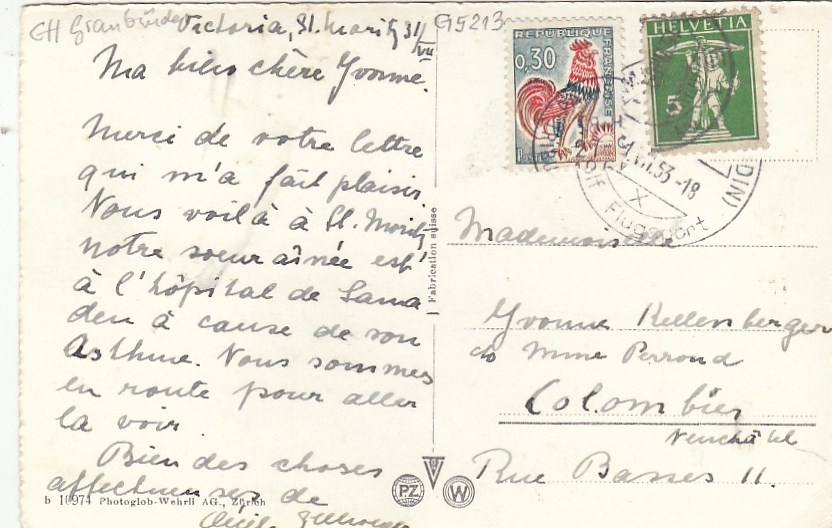 CH Graubünden
G5213
Victoria, St. Moritz 31/VII
Ma bien chère Yvonne.
Merci de votre lettre
qui m'a fait plaisir.
Nous voilà à St. Moritz
notre soeur aînée est
à l'hôpital de Sama
den à cause de son
Asthme. Nous sommes
en route pour aller
la voir
Bien des choses
affectueuses de
b 10974 Photoglob-Wehrli AG., Zürich
Fabrication suisse
PZ
W
REPUBLIQUE
FRANÇAISE
0,30
POSTES
HELVETIA
5
31.VII.53-18
Flugsport
Mademoiselle
Yvonne Kellenberger
c/o Mme Perroud
Colombier
Neuchâtel
Rue Basses 11.